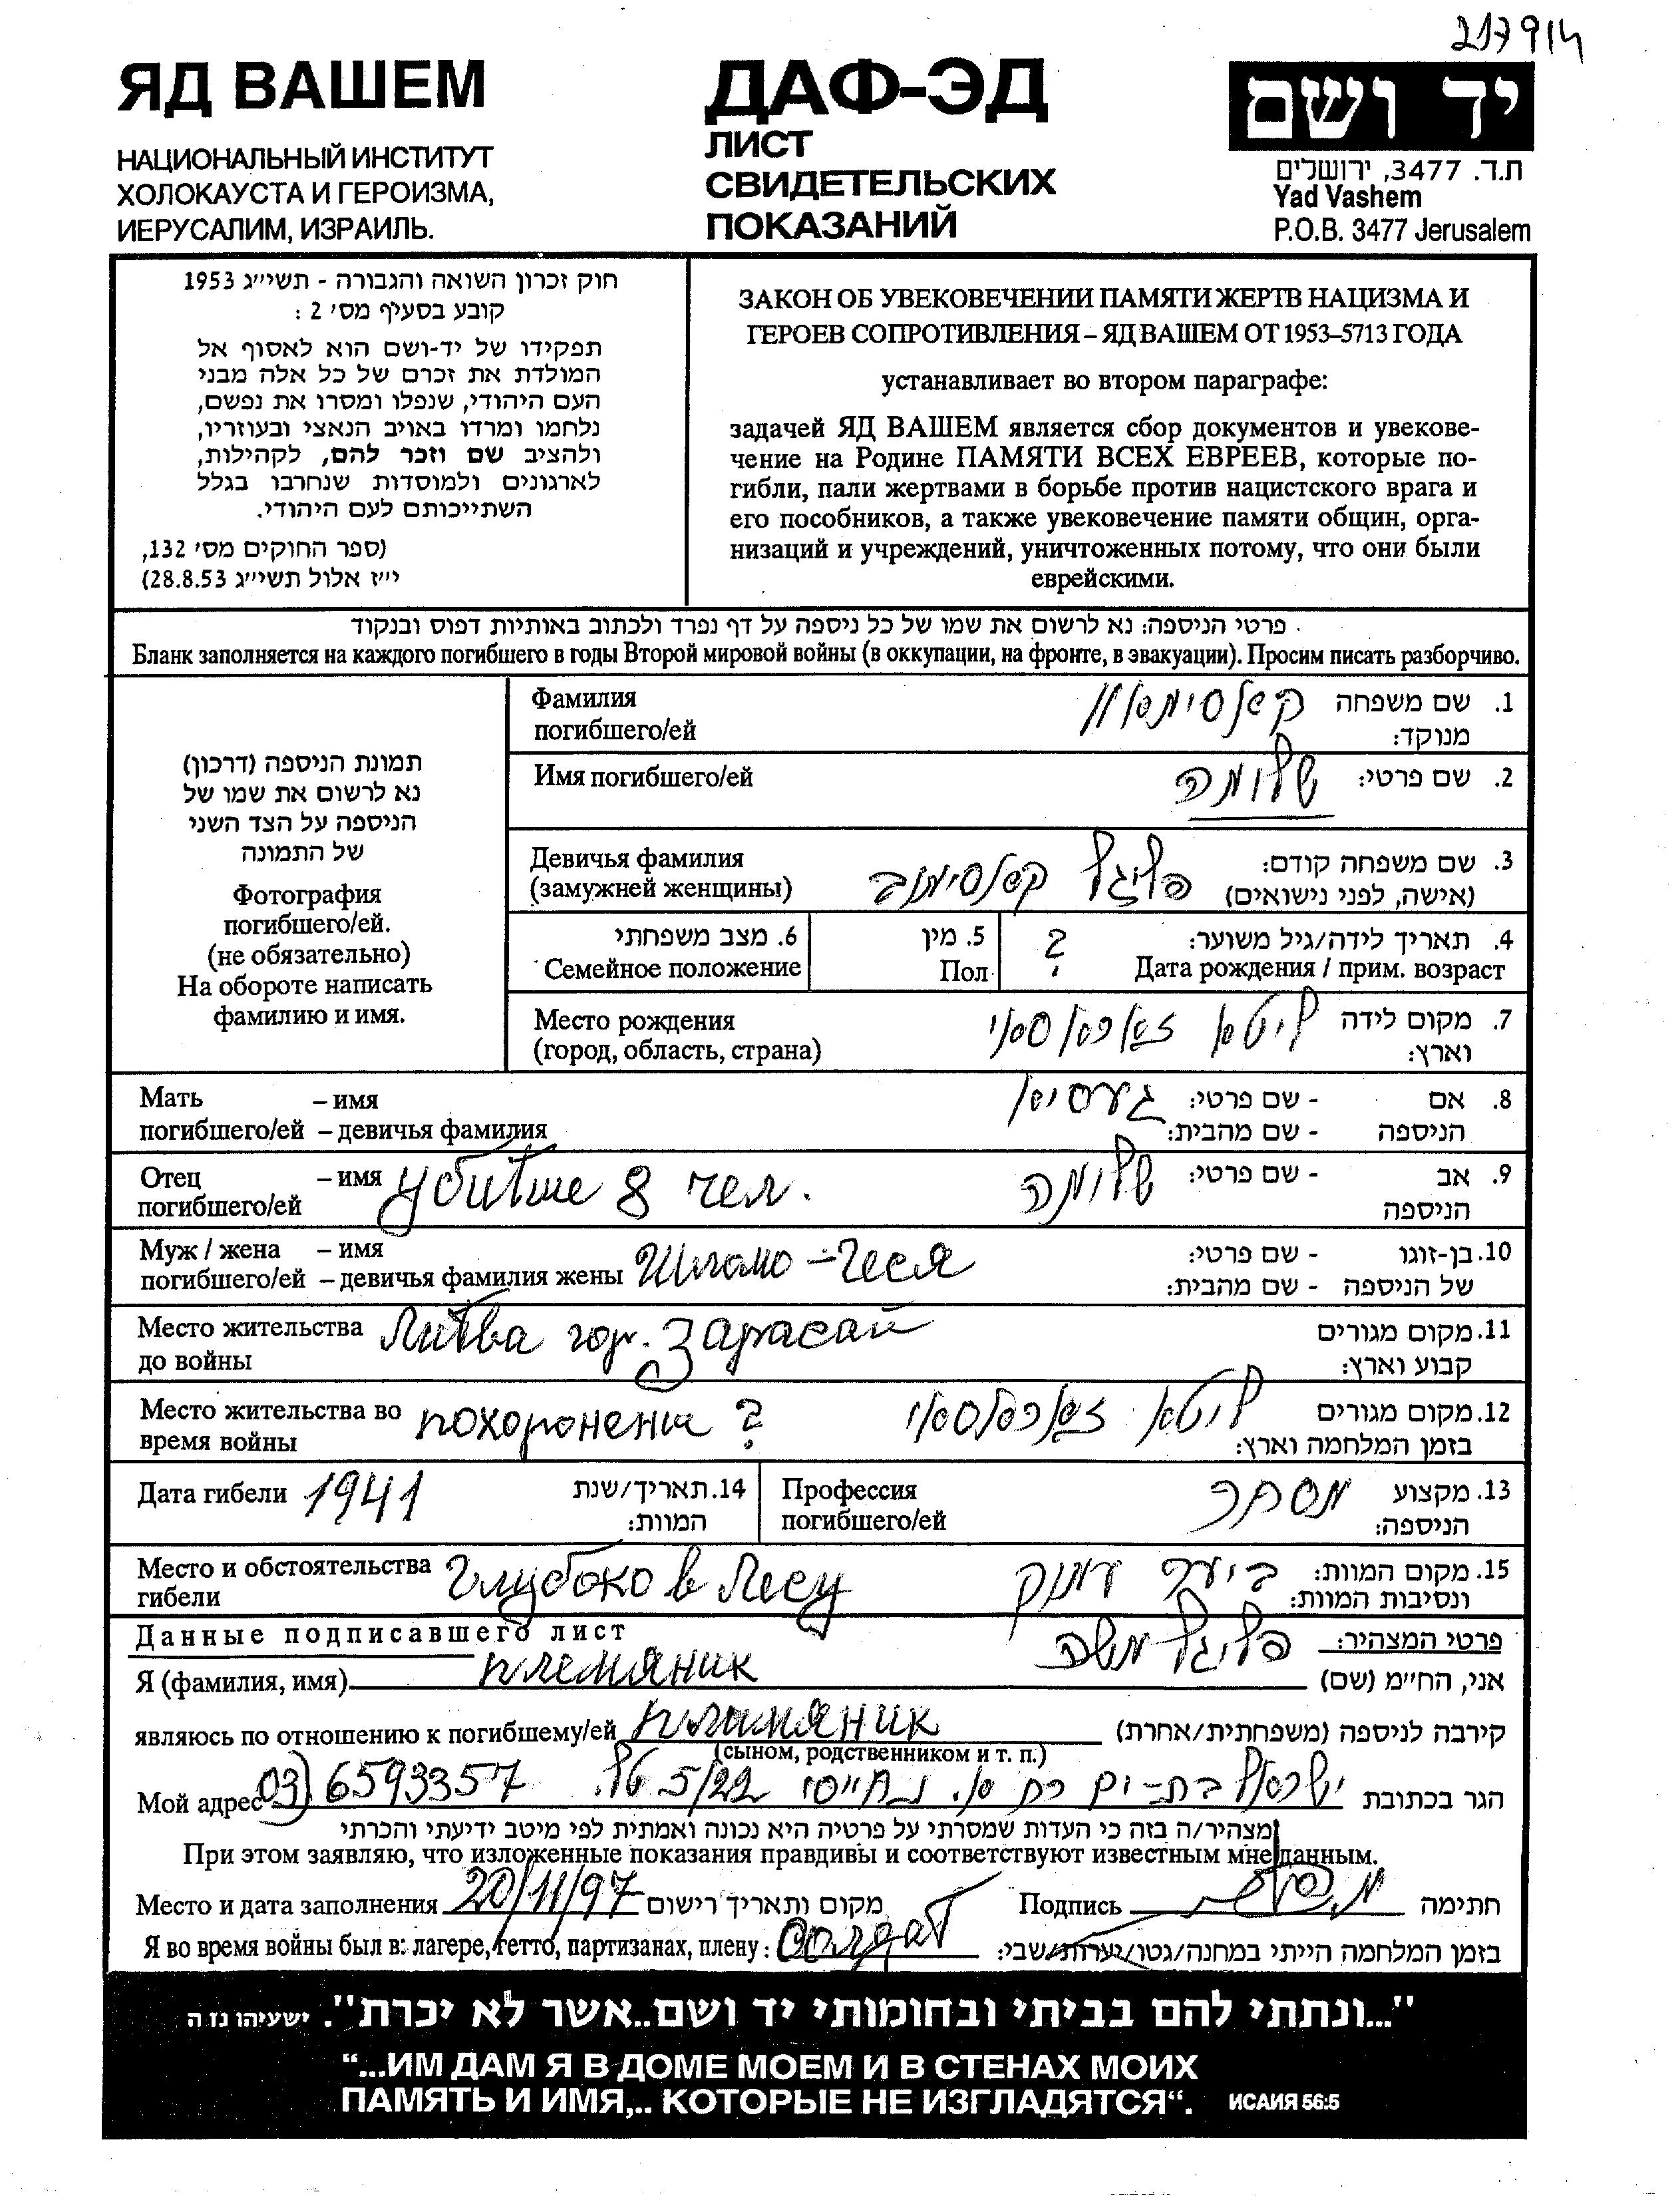 217914
ЯД ВАШЕМ
НАЦИОНАЛЬНЫЙ ИНСТИТУТ
ХОЛОКАУСТА И ГЕРОИЗМА,
ИЕРУСАЛИМ, ИЗРАИЛЬ.
ДАФ-ЭД
ЛИСТ
СВИДЕТЕЛЬСКИХ
ПОКАЗАНИЙ
יד ושם
ת.ד. 3477, ירושלים
Yad Vashem
P.O.B. 3477 Jerusalem
חוק זכרון השואה והגבורה - תשי״ג 1953
קובע בסעיף מס׳ 2 :
תפקידו של יד-ושם הוא לאסוף אל
המולדת את זכרם של כל אלה מבני
העם היהודי, שנפלו ומסרו את נפשם,
נלחמו ומרדו באויב הנאצי ובעוזריו,
ולהציב שם וזכר להם, לקהילות,
לארגונים ולמוסדות שנחרבו בגלל
השתייכותם לעם היהודי.
(ספר החוקים מס׳ 132,
י״ז אלול תשי״ג 28.8.53)
ЗАКОН ОБ УВЕКОВЕЧЕНИИ ПАМЯТИ ЖЕРТВ НАЦИЗМА И
ГЕРОЕВ СОПРОТИВЛЕНИЯ – ЯД ВАШЕМ ОТ 1953–5713 ГОДА
устанавливает во втором параграфе:
задачей ЯД ВАШЕМ является сбор документов и увекове-
чение на Родине ПАМЯТИ ВСЕХ ЕВРЕЕВ, которые по-
гибли, пали жертвами в борьбе против нацистского врага и
его пособников, а также увековечение памяти общин, орга-
низаций и учреждений, уничтоженных потому, что они были
еврейскими.
פרטי הניספה: נא לרשום את שמו של כל ניספה על דף נפרד ולכתוב באותיות דפוס ובנקוד
Бланк заполняется на каждого погибшего в годы Второй мировой войны (в оккупации, на фронте, в эвакуации). Просим писать разборчиво.
תמונת הניספה (דרכון)
נא לרשום את שמו של
הניספה על הצד השני
של התמונה
Фотография
погибшего/ей.
(не обязательно)
На обороте написать
фамилию и имя.
Фамилия
погибшего/ей
1. שם משפחה
מנוקד:
Имя погибшего/ей
2. שם פרטי: שלומה
Девичья фамилия
(замужней женщины)
3. שם משפחה קודם:
(אישה, לפני נישואים)
פליגל
4. תאריך לידה/גיל משוער: ?
Дата рождения / прим. возраст
5. מין
Пол
6. מצב משפחתי
Семейное положение
Место рождения
(город, область, страна)
7. מקום לידה
וארץ:
ליטא זאראסאי
Мать – имя
погибшего/ей – девичья фамилия
8. אם - שם פרטי: געסיא
הניספה - שם מהבית:
Отец – имя убитые 8 чел.
погибшего/ей
9. אב - שם פרטי: שלומה
הניספה
Муж / жена – имя
погибшего/ей – девичья фамилия жены Шломо – Геся
10. בן-זוגו - שם פרטי:
של הניספה - שם מהבית:
Место жительства
до войны
Литва гор. Зарасай
11. מקום מגורים
קבוע וארץ:
Место жительства во
время войны
похоронены ?
12. מקום מגורים
בזמן המלחמה וארץ:
ליטא זאראסאי
Дата гибели 1941
14. תאריך/שנת
המוות:
Профессия
погибшего/ей
13. מקצוע
הניספה:
מסחר
Место и обстоятельства
гибели
Глубоко в Лесу
15. מקום המוות:
ונסיבות המוות:
ביער עמוק
Данные подписавшего лист
פרטי המצהיר:
Я (фамилия, имя) племяник
אני, החיימ (שם) פליגל משה
являюсь по отношению к погибшему/ей племяник
קירבה לניספה (משפחתית/אחרת)
(сыном, родственником и т. п.)
Мой адрес (03) 6593357
הגר בכתובת ישראל בת-ים 5/22 טל.
מצהיר/ה בזה כי העדות שמסרתי על פרטיה היא נכונה ואמתית לפי מיטב ידיעתי והכרתי
При этом заявляю, что изложенные показания правдивы и соответствуют известным мне данным.
Место и дата заполнения 20/11/97 מקום ותאריך רישום
Подпись חתימה
Я во время войны был в: лагере, гетто, партизанах, плену: Солдат
בזמן המלחמה הייתי במחנה/גטו/יערות/שבי:
"...ונתתי להם בביתי ובחומותי יד ושם..אשר לא יכרת". ישעיהו נז ה
“...ИМ ДАМ Я В ДОМЕ МОЕМ И В СТЕНАХ МОИХ
ПАМЯТЬ И ИМЯ,.. КОТОРЫЕ НЕ ИЗГЛАДЯТСЯ“. ИСАИЯ 56:5